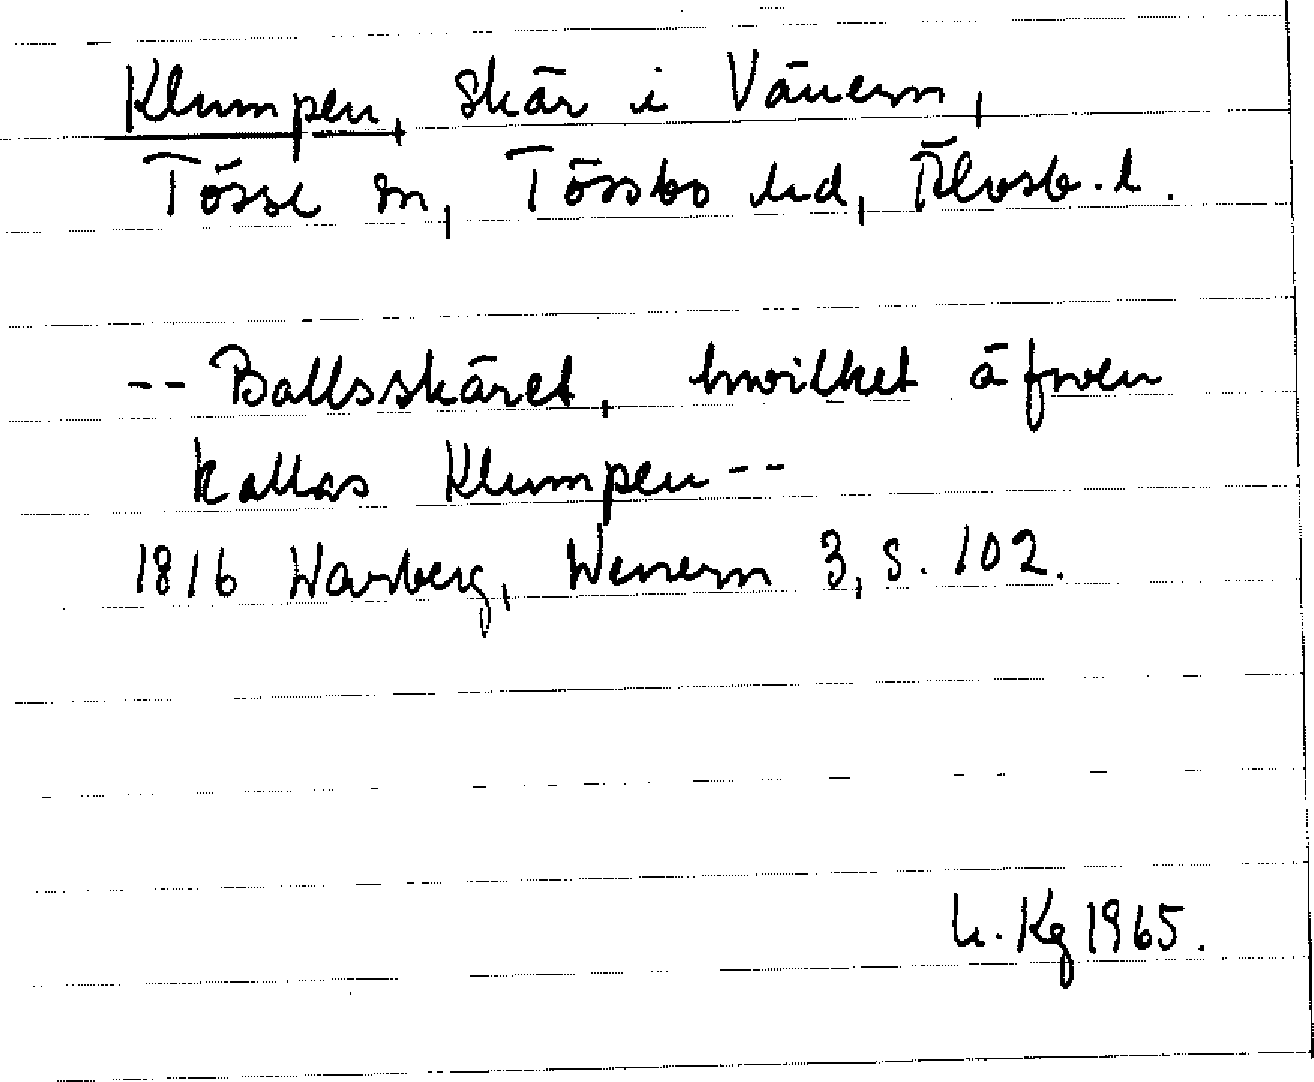 Klumpen, skär i Vänern,
Tösse sn, Tössbo hd, Älvsb. l.
-- Ballsskäret, hwilket äfwen
kallas Klumpen --
1816 Warberg, Wenern 3, s. 102.
Kg 1965.